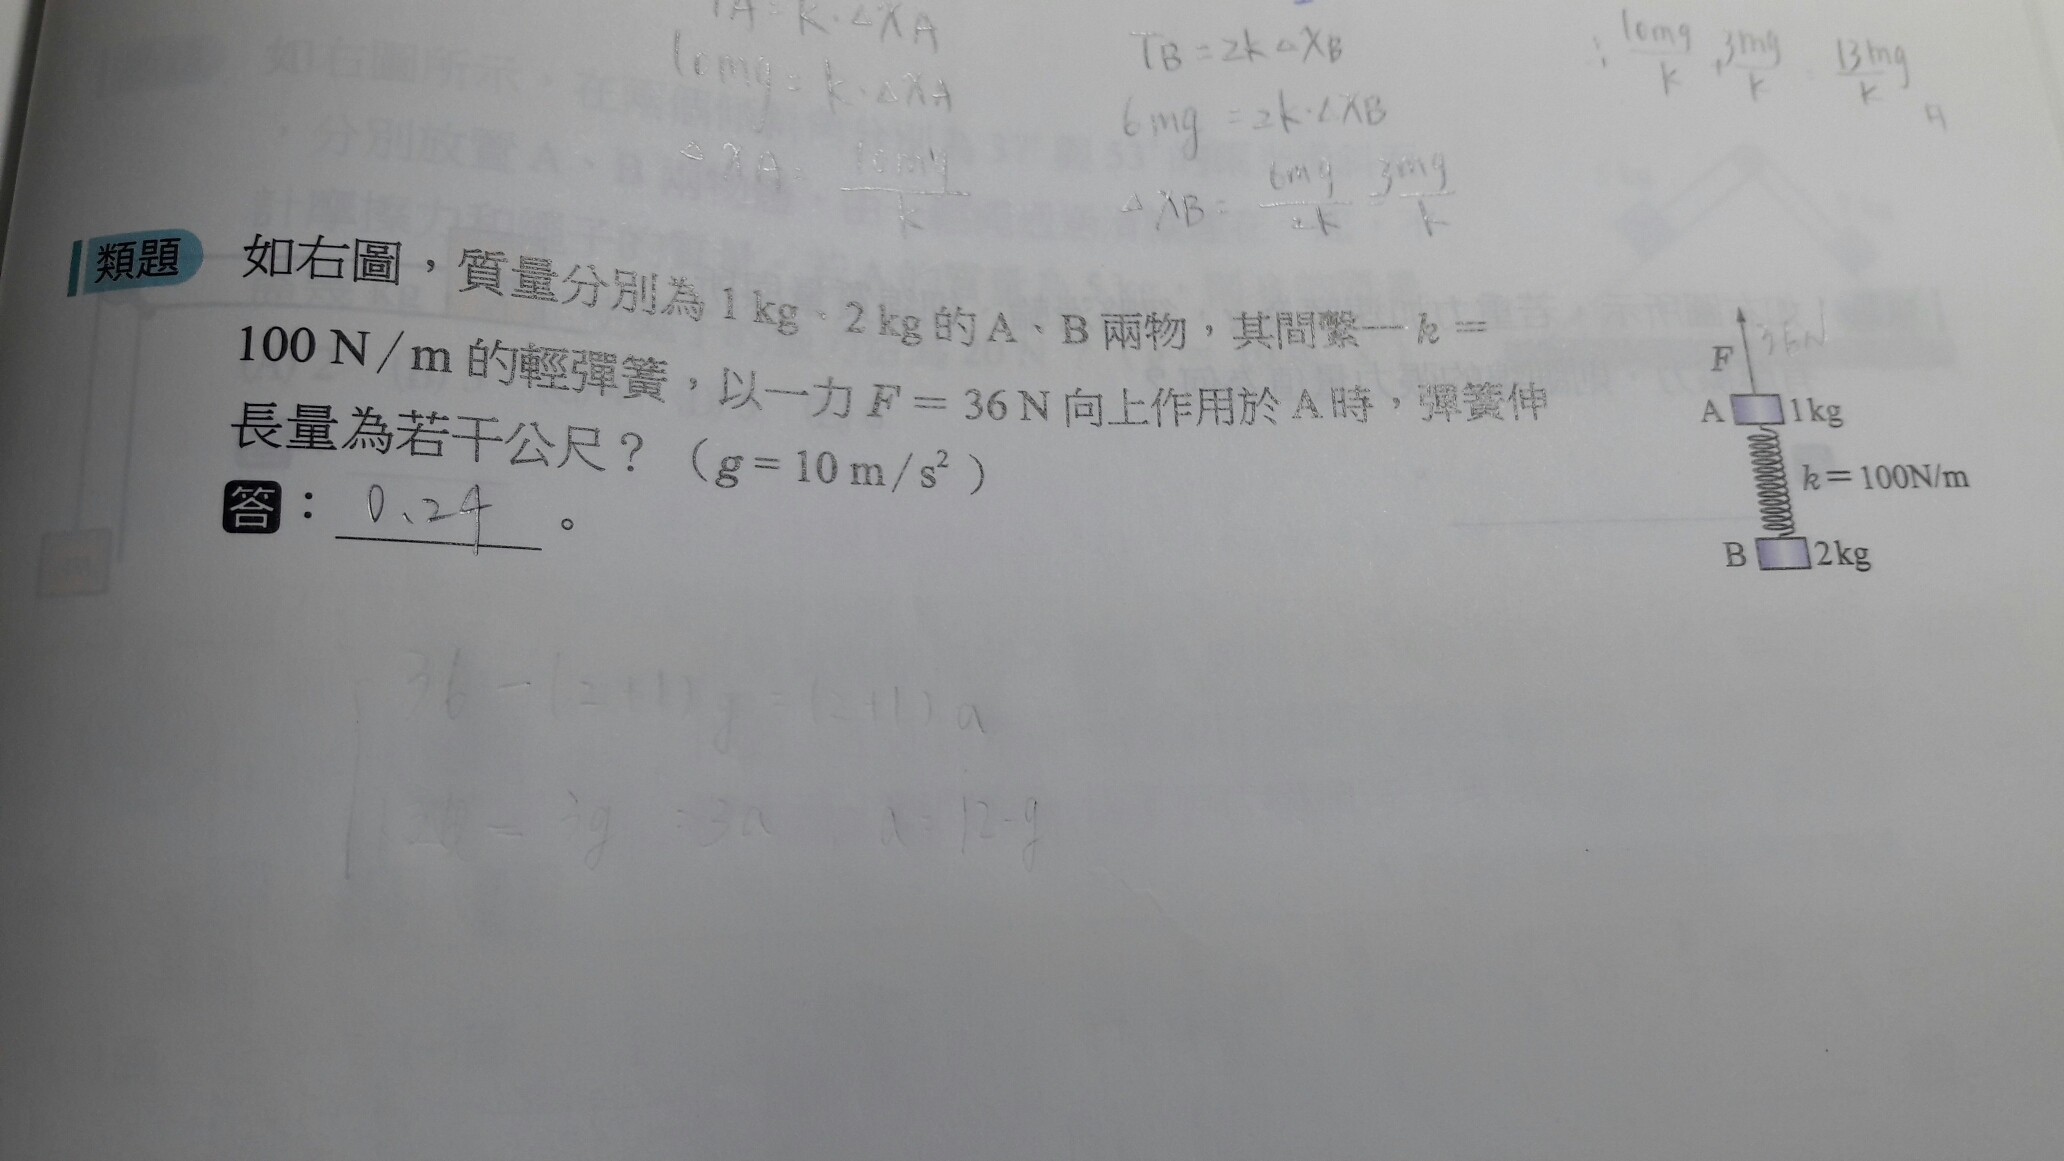 TA = k · △XA
10mg = k · △XA
△XA = 10mg / k
TB = 2k △XB
6mg = 2k · △XB
△XB = 6mg / 2k 3mg / k
10mg / k + 3mg / k = 13mg / k
類題 如右圖，質量分別為 1 kg、2 kg 的 A、B 兩物，其間繫一 k =
100 N/m 的輕彈簧，以一力 F = 36 N 向上作用於 A 時，彈簧伸
長量為若干公尺？（g = 10 m/s²）
答：0.24。
F 36N
A 1kg
k = 100N/m
B 2kg
36 - (2+1)g = (2+1)a
36 - 3g = 3a a = 12-g